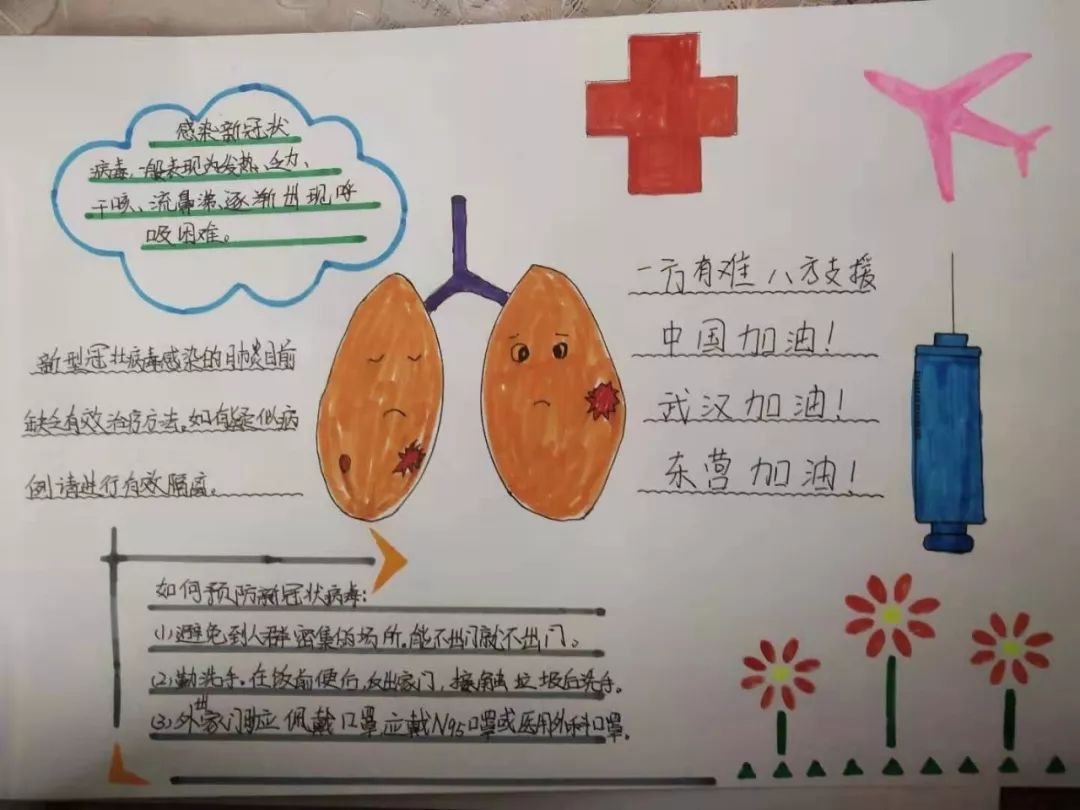 感染新冠状
病毒,一般表现为发热、乏力、
干咳、流鼻涕、逐渐出现呼
吸困难。
新型冠状病毒感染的肺炎目前
缺乏有效治疗方法。如有疑似病
例请进行有效隔离。
一方有难 八方支援
中国加油!
武汉加油!
东营加油!
如何预防新冠状病毒:
(1)避免到人群密集的场所。能不出门就不出门。
(2)勤洗手。在饭前便后,及出家门,接触垃圾后洗手。
(3)外出家门时应佩戴口罩应戴N95口罩或医用外科口罩。